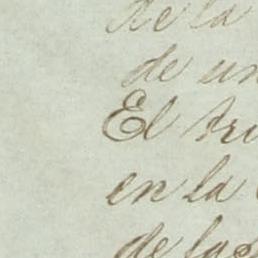 de la
de un
El tri
en la
de las